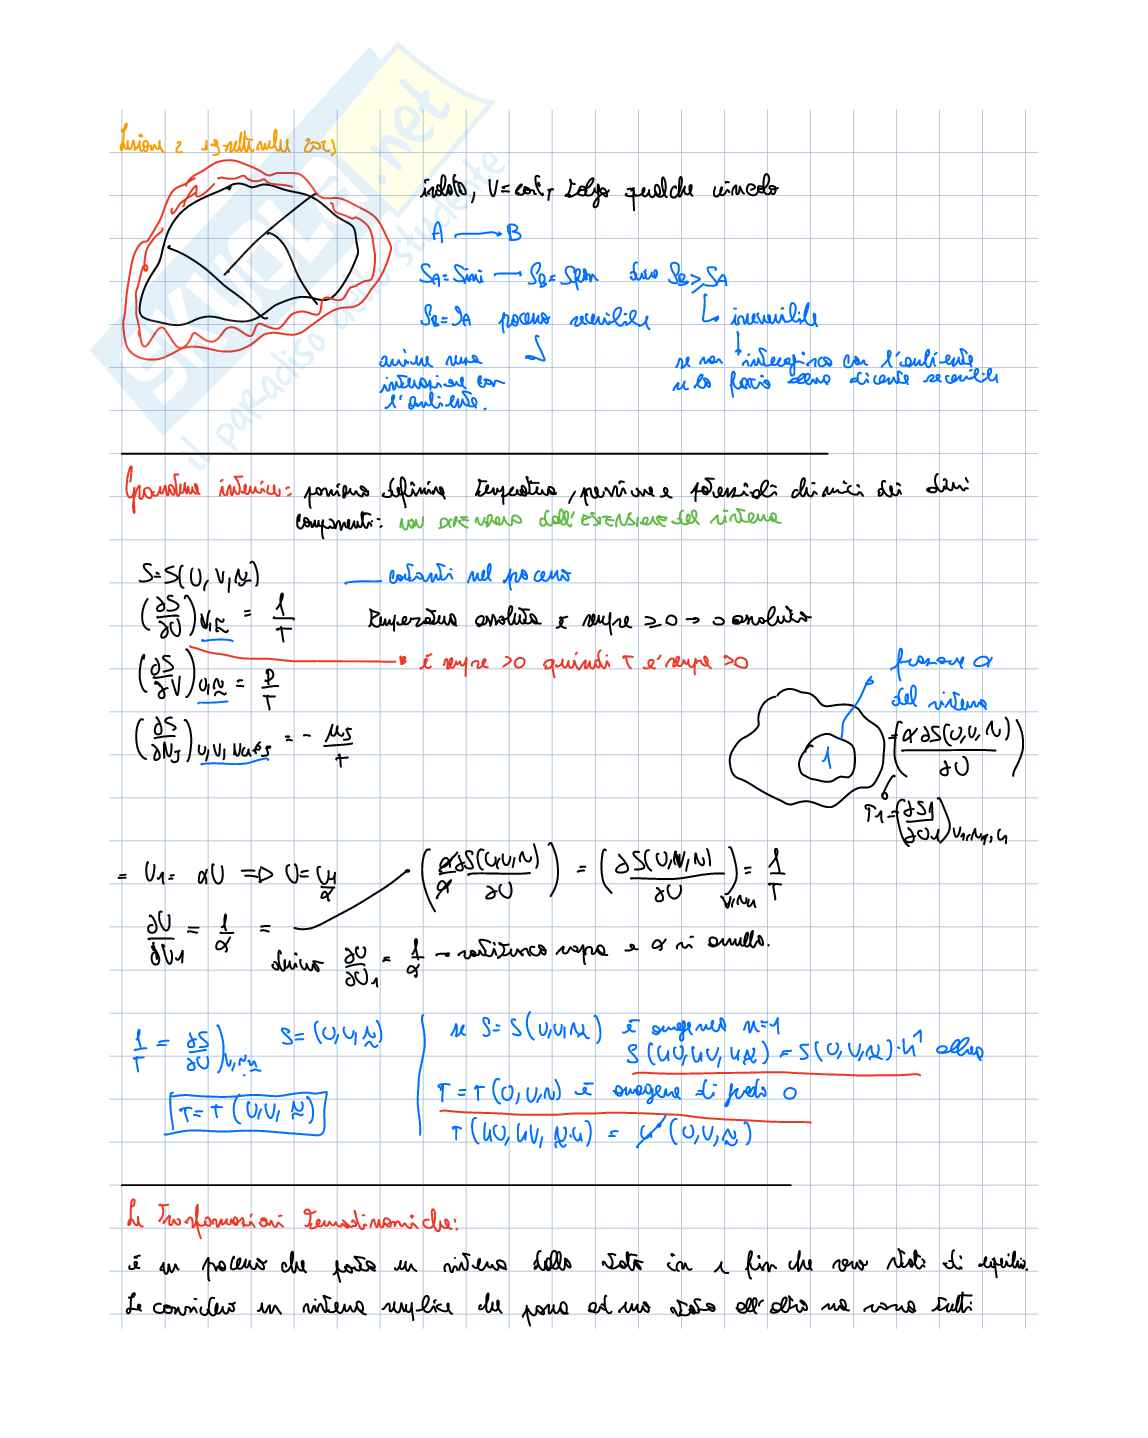 Lezione 2 29 settembre 2023
isolato, V=cost, tolgo qualche vincolo
A → B
SA=Sini → SB=Sfin dove SB≥SA
SB=SA processo reversibile ↳ irreversibile
avviene senza interazione con l'ambiente.
se non interagisco con l'ambiente
se lo faccio allora diventa reversibile
Grandezze intensive: possiamo definire temperatura, pressione e potenziali chimici dei diversi
componenti: non dipendono dall'ESTENSIONE del sistema
S=S(U,V,N)
costanti nel processo
(∂S/∂U)V,N = 1/T
Temperatura assoluta è sempre ≥0 → 0 assoluto
è sempre >0 quindi T è sempre >0
(∂S/∂V)U,N = P/T
(∂S/∂NJ)U,V,NK≠J = - μJ/T
frazione α
del sistema
1
=(α∂S(U,V,N)/∂U)
T1=(∂S1/∂U1)V1,N1
= U1= αU => U=U1/α
(α∂S(U,V,N)/α∂U) = (∂S(U,V,N)/∂U)V,N = 1/T
∂U/∂U1 = 1/α =
derivo ∂U/∂U1 = 1/α → sostituisco sopra e α si annulla.
1/T = ∂S/∂U)V,N S=(U,V,N)
T=T(U,V,N)
se S=S(U,V,N) è omogenea n=1
S(kU,kV,kN) = S(U,V,N)·k¹ allora
T=T(U,V,N) è omogenea di grado 0
T(kU,kV,N·k) = k(U,V,N)
Le Trasformazioni termodinamiche:
è un processo che porta un sistema dallo stato in e fin che sono stati di equilibrio.
Se considero un sistema semplice che passa ad uno stato all'altro ma sono tutti